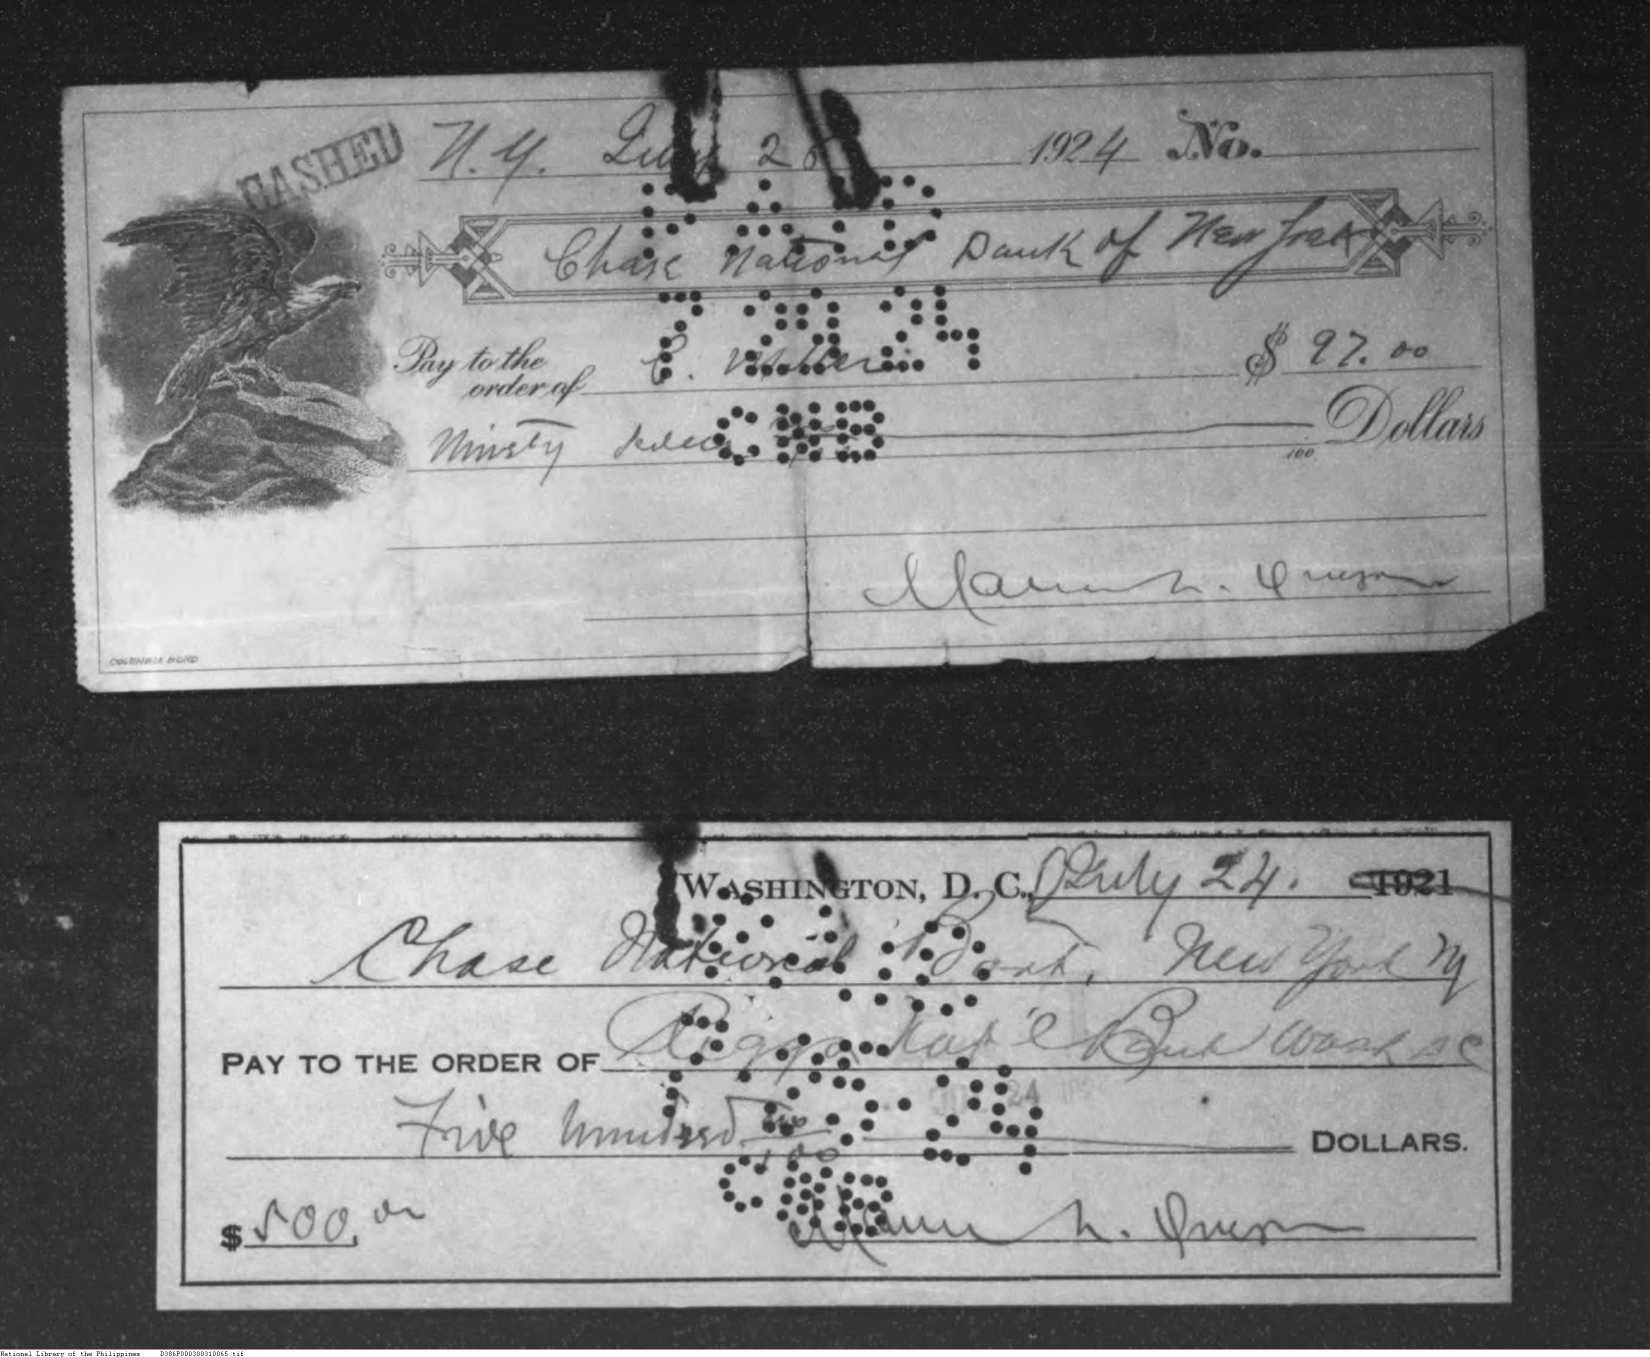 CASHED
N. Y. July 2 1924 No.
PAID
Chase National Bank of New York
7 24
Pay to the
order of $ 97.00
Ninety Dollars
CNB
100
Manuel L. Quezon
COLUMBIA BOND
WASHINGTON, D. C., July 24. 1921
Chase National Bank, New York NY
PAY TO THE ORDER OF Riggs Nat'l Bank Wash DC
24
Five hundred 00/100 DOLLARS.
CNB
$ 500.00
Manuel L. Quezon
National Library of the Philippines D386P000300310065.tif